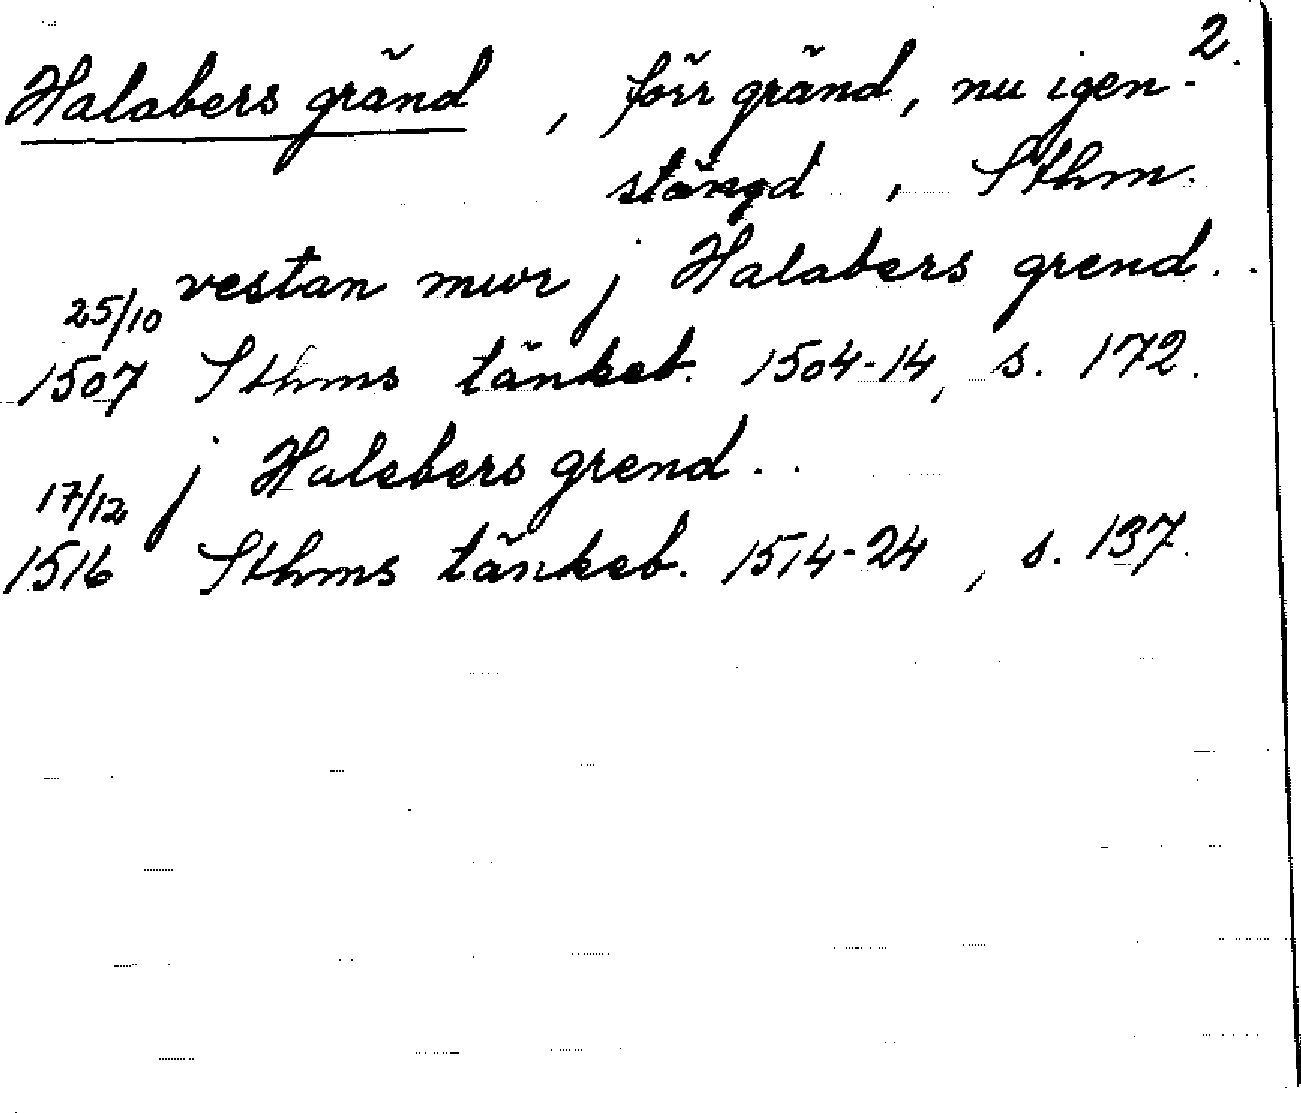 2.
Halabers gränd, förr gränd, nu igen-
stängd, Sthm.
25/10 vestan mwr j Halabers grend. .
1507 Sthms tänkeb. 1504-14, s. 172.
17/12 j Halebers grend. .
1516 Sthms tänkeb. 1514-24, s. 137.